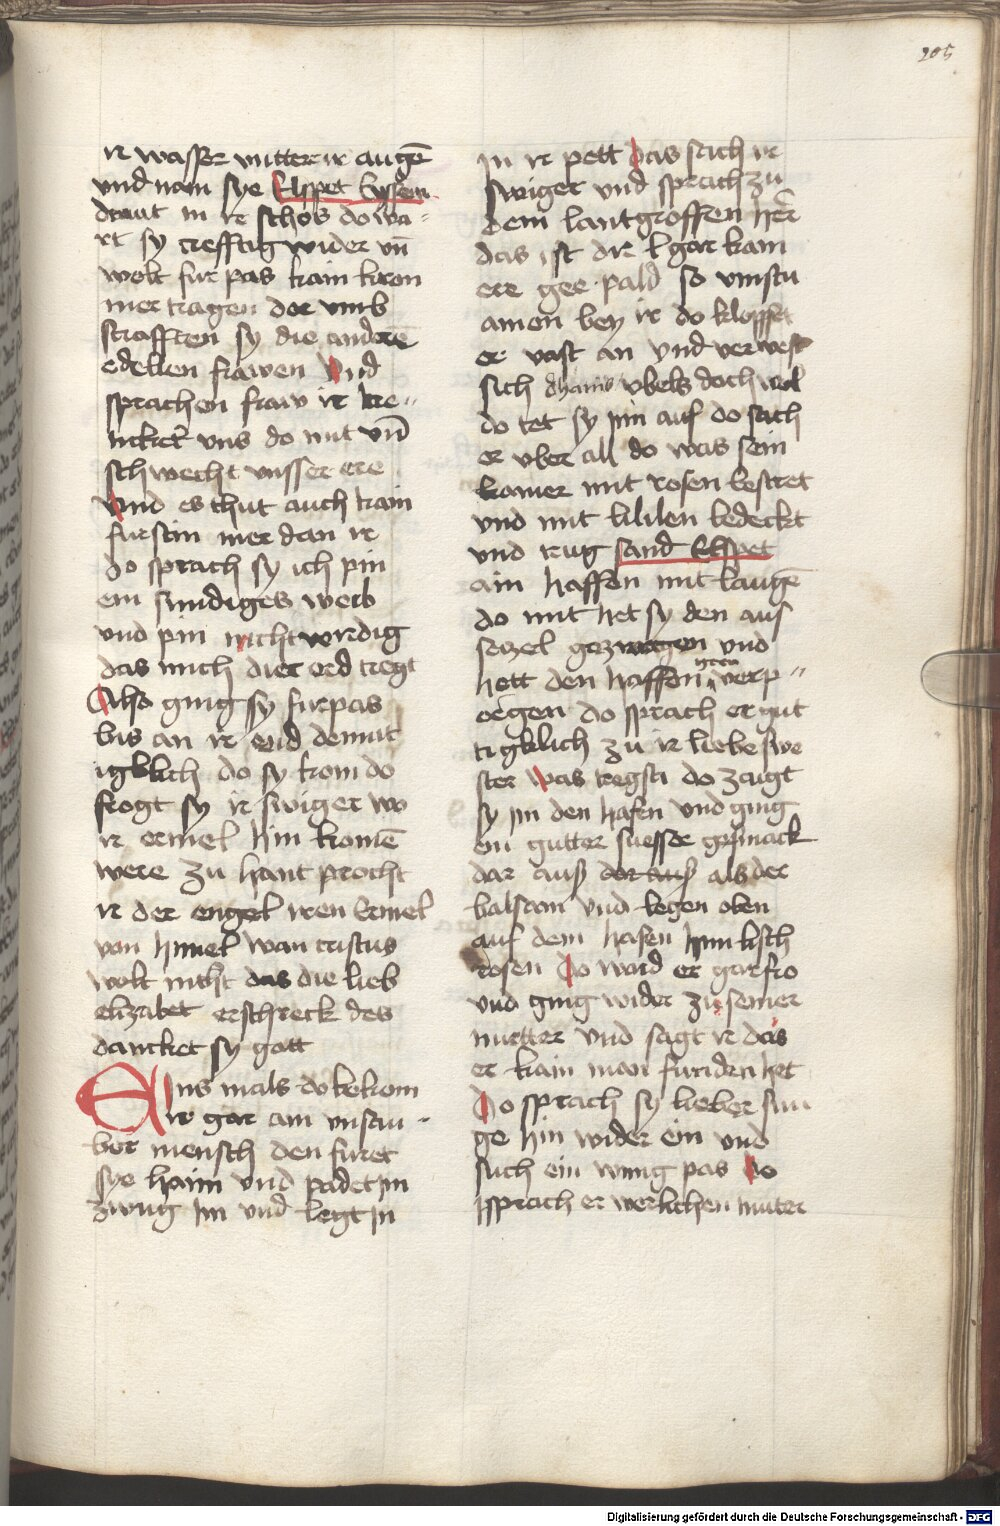 205
ir wasser vnitter ir augē
vnd nam sye Elspet Eysem
draut in ir schos do wa-
rt sy crefftig wider vn̄
wolt fur pas kain kron
mer tragen dor vmb
strafften sy die anderē
edellen frawen Vnd
sprachen fraw ir kre-
ncket vns do mit vn̄
schwecht vnsser ere
Vnd es thut auch kain
furstin mer dan ir
do sprach sy ich pin
ein sundiges weib
vnd pin nicht wirdig
das mich dier erd tregt
Also ging sy furpas
bis an ir end demut
igklich do sy kom do
frogt sy ir swiger wo
ir ermel hin komē
were zu hant procht
ir der engel iren Ermel
von himel wan cristus
wolt nicht das die lieb
elizabet erschreck des
dancket sy gott
Eins mals do bekom
ir gar ain vnsau-
ber mensch den furet
sye haim vnd padet in
zwug im vnd legt in
in ir pett das sach ir
swiger vnd sprach zu
dem lantgroffen her
das ist dir lgar kam
ere gee pald so vinstu
amen bey ir do klopffet
er vast an vnd verwest
sich vbels doch wol
do tet sy im auf do sach
er vber all do was sein
kamer mit rosen bestret
vnd mit lililen bedeckt
vnd trug sand Elspet
ain haffen mit laugē
do mit het sy den auf
seczel gezwagen vnd
hett den haffen verp-
orgen do sprach er gut
tigklich zu ir liebe swe
ster was tregstu do zaigt
sy im den hafen vnd ging
ein gutter suesser geschmack
dar auß dor auß als der
balsam vnd legen oben
auf dem hafen himlisch
rosen Do ward er gar fro
vnd ging wider zu seiner
mutter vnd sagt ir das
er kain man funden het
Do sprach sy lieber sun
ge hin wider ein vnd
such ein wing pas Do
sprach er werlichen muter
Digitalisierung gefördert durch die Deutsche Forschungsgemeinschaft - DFG